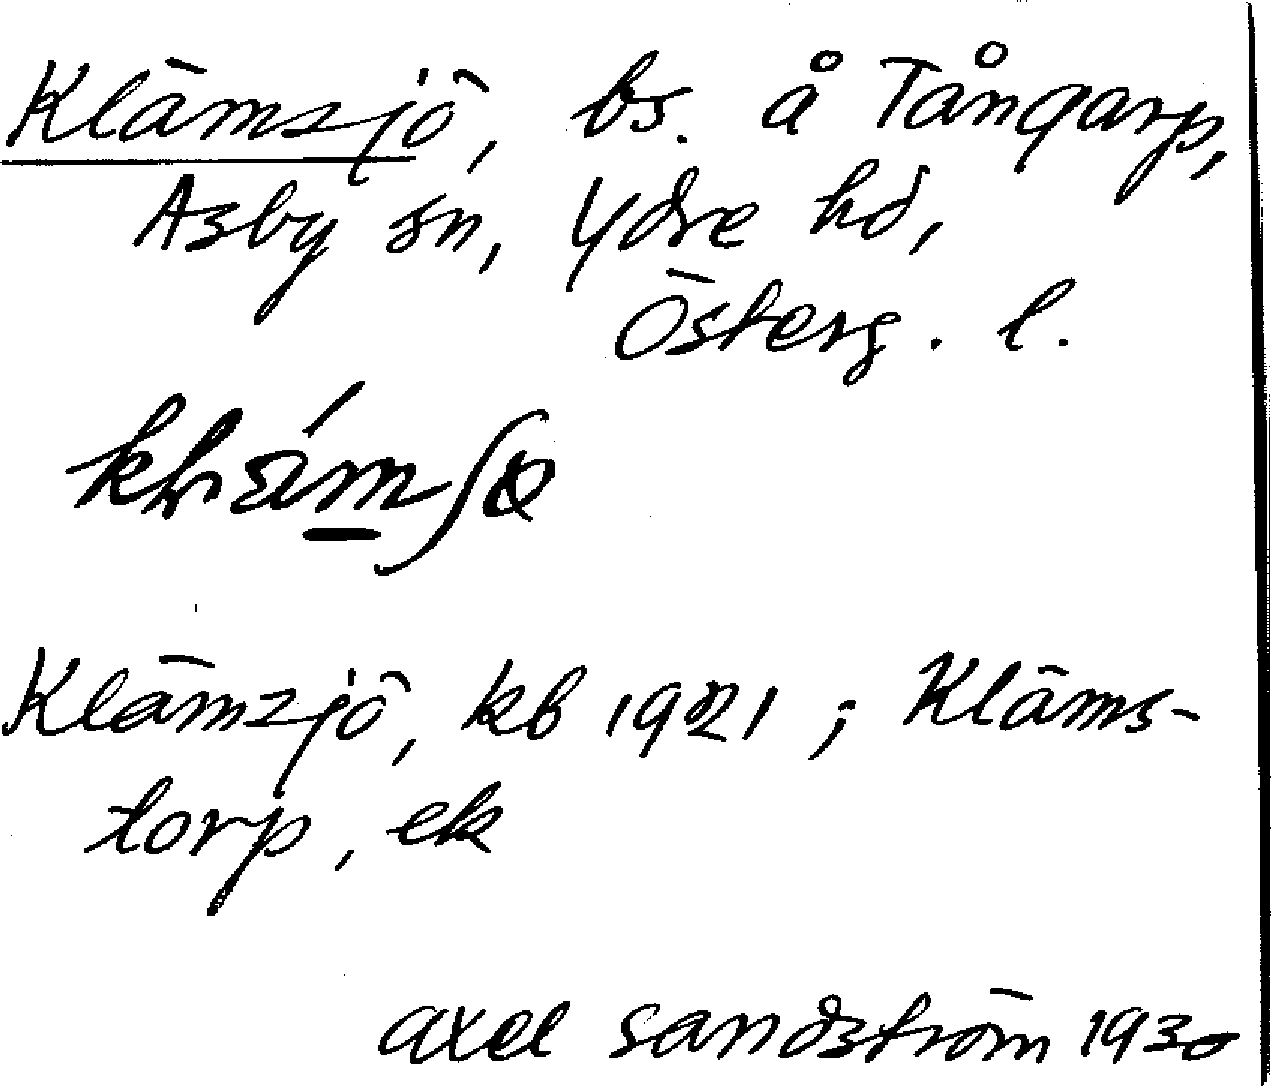 Klämsjö, bs. å Tångarp,
Asby sn, Ydre hd,
Österg. l.
Klämsjö, kb 1921; Kläms-
torp, ek
Axel Sandström 1930